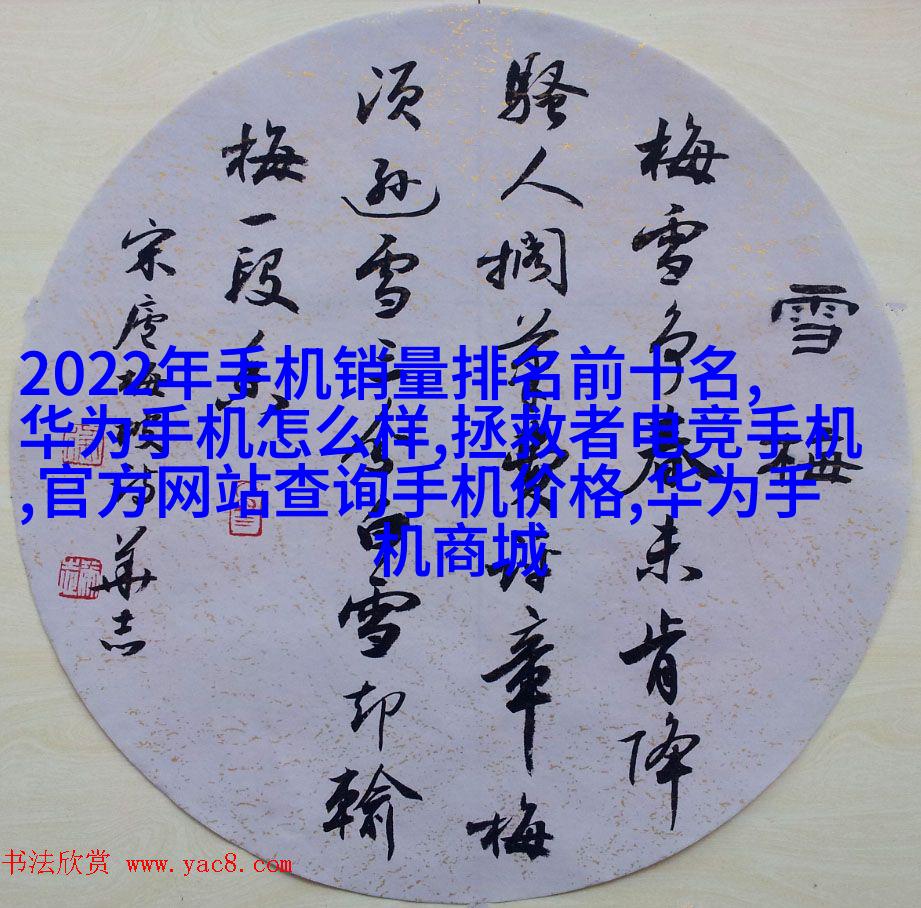 雪梅
梅雪争春未肯降
骚人搁笔费评章梅
须逊雪三分白雪却输
梅一段香
宋卢梅坡诗 华志
2022年手机销量排名前十名,
华为手机怎么样,拯救者电竞手机
,官方网站查询手机价格,华为手
机商城
书法欣赏 www.yac8.com